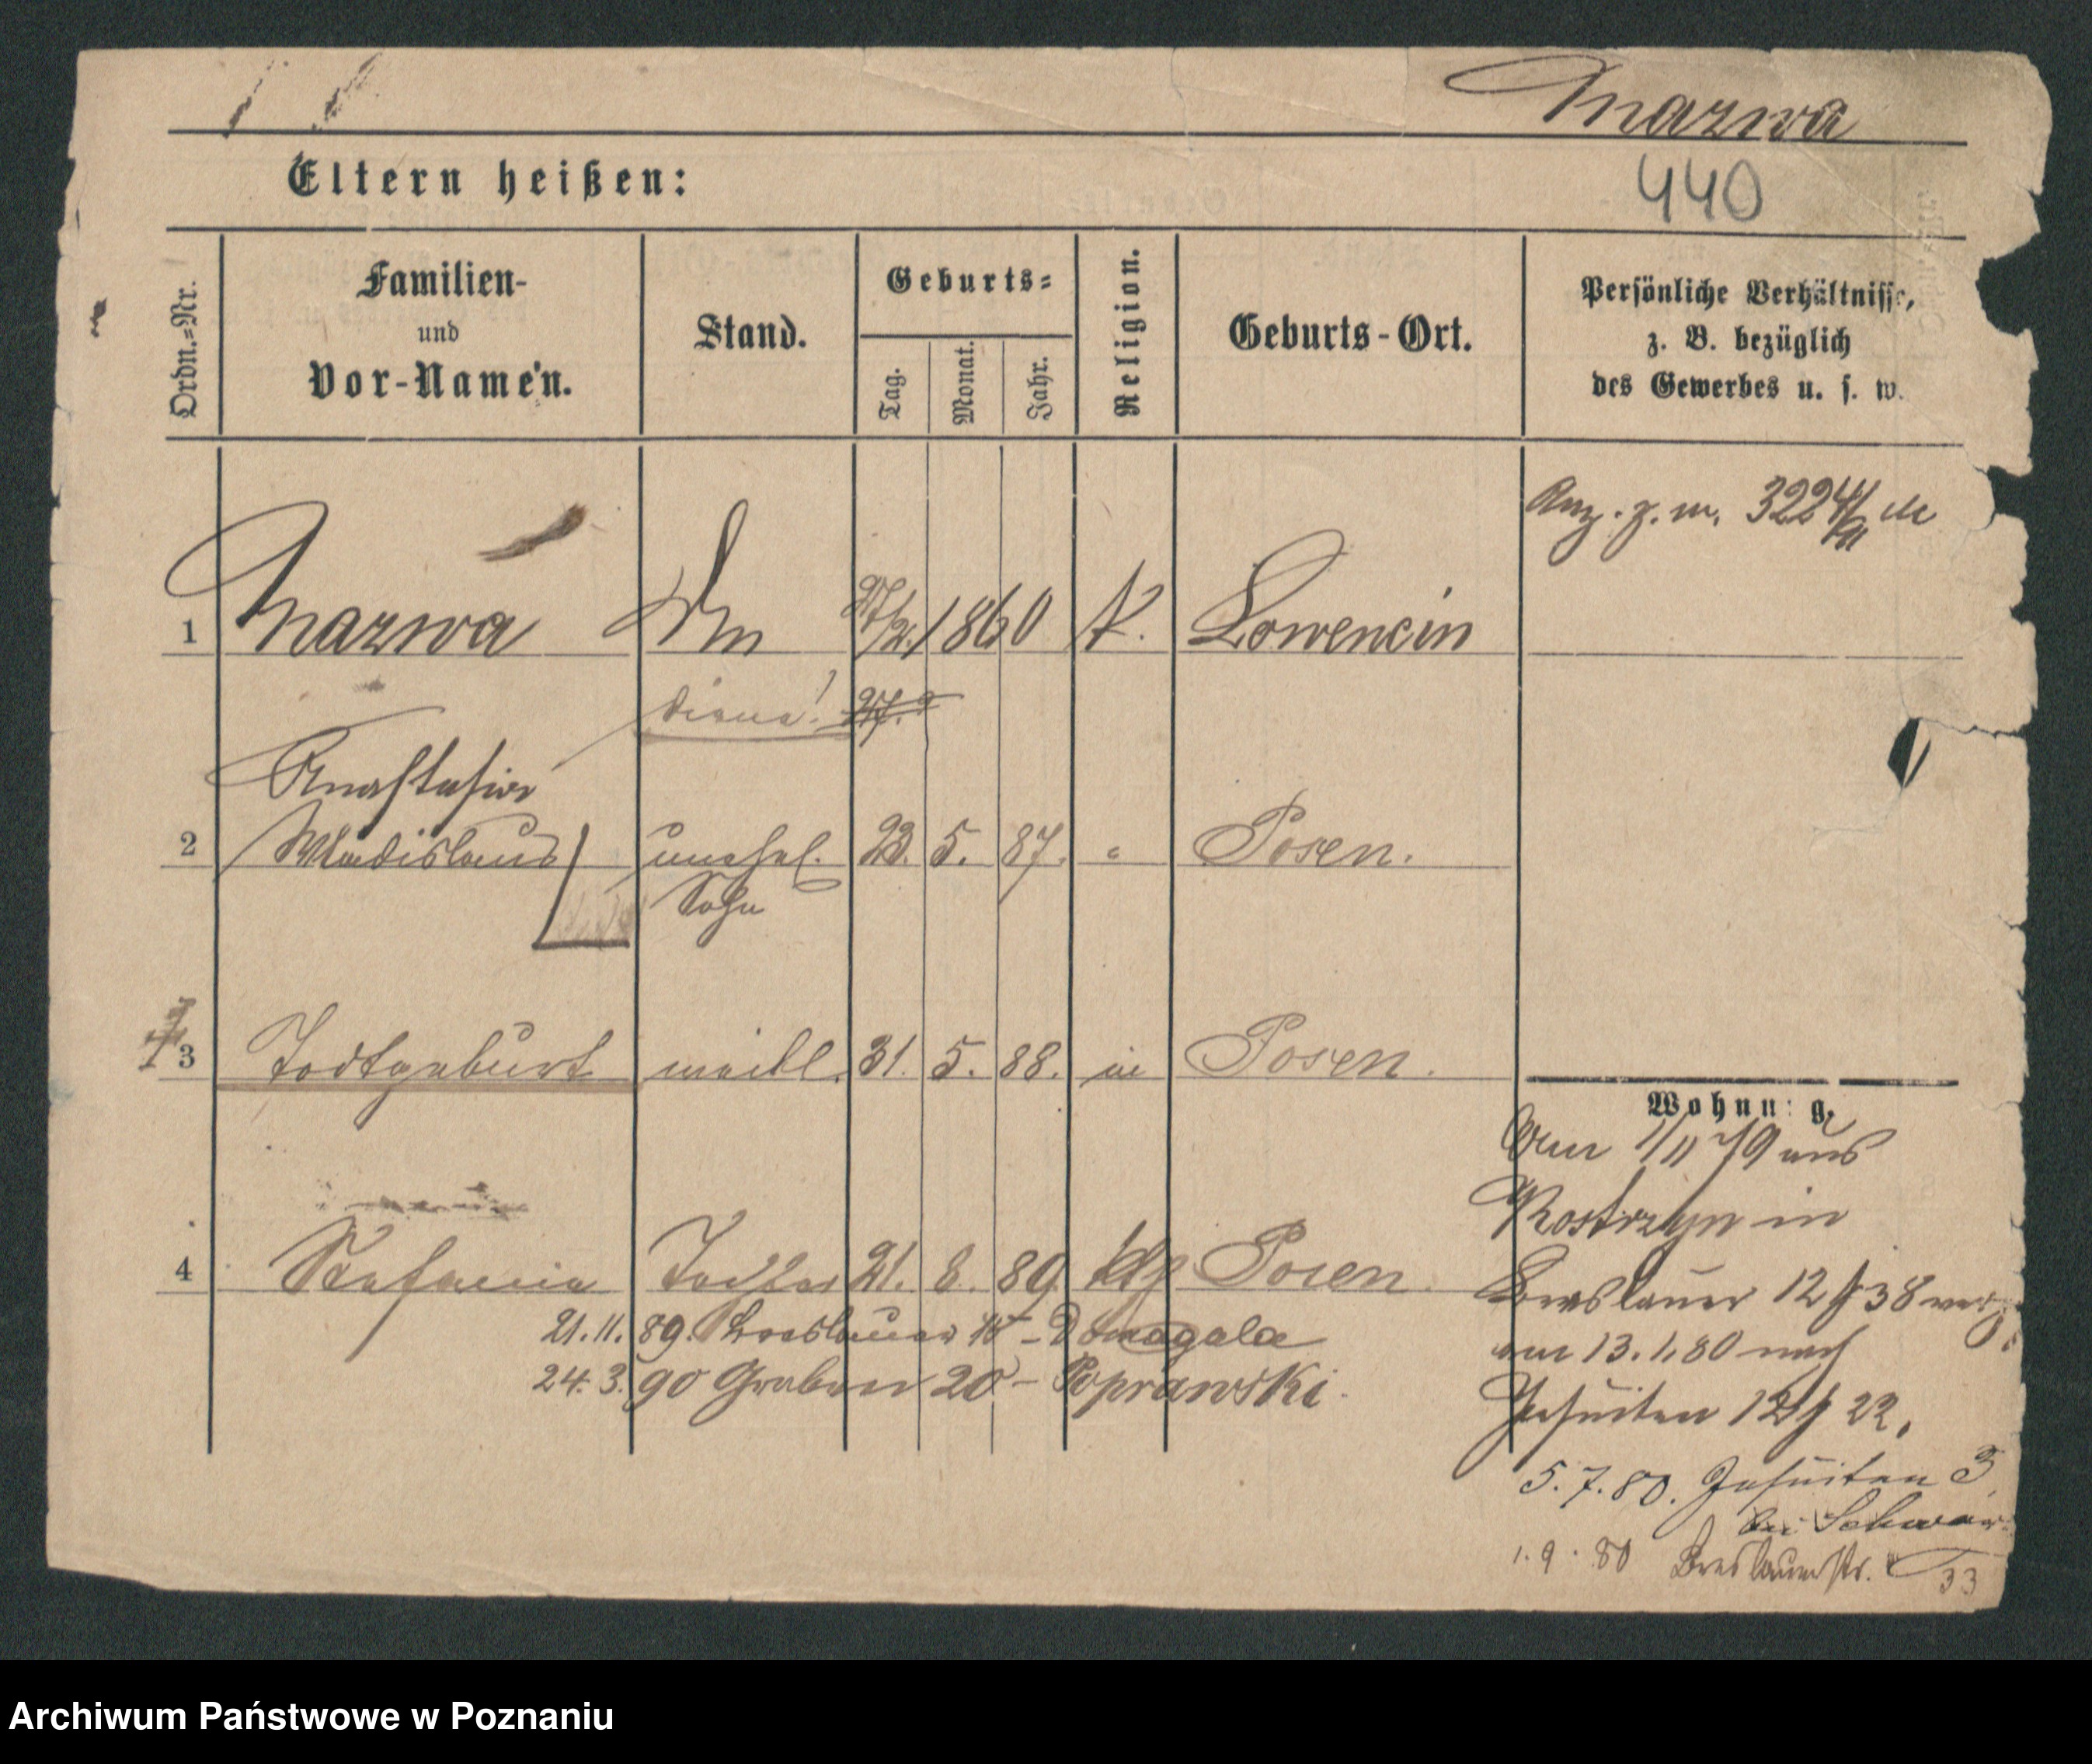 Nazwa
440
Eltern heißen:
Ordn.-Nr.
Familien-
und
Vor-Namen.
Stand.
Geburts-
Tag.
Monat.
Jahr.
Religion.
Geburts-Ort.
Persönliche Verhältnisse,
z. B. bezüglich
des Gewerbes u. s. w.
1 Nazwa 27/2. 1860 K. Lowencin
27. 2
Anastasia
2 Wladislaus unehel. 23. 5. 87. " Posen.
Sohn
3 Todtgeburt weibl. 31. 5. 88. Posen.
4 Stefania Tochter 21. 8. 89 kth Posen.
21. 11. 89. Breslauer 15 - Domagala
24. 3. 90 Graben 20 - Poprawski.
Wohnung.
1/11 79 aus
Kostrzyn in
Breslauer 12 b 38
am 13. 1. 80 nach
Jesuiten 12 b 22.
5. 7. 80. Jesuiten 3
bei
1. 9. 80 Breslauerstr. 33
Archiwum Państwowe w Poznaniu